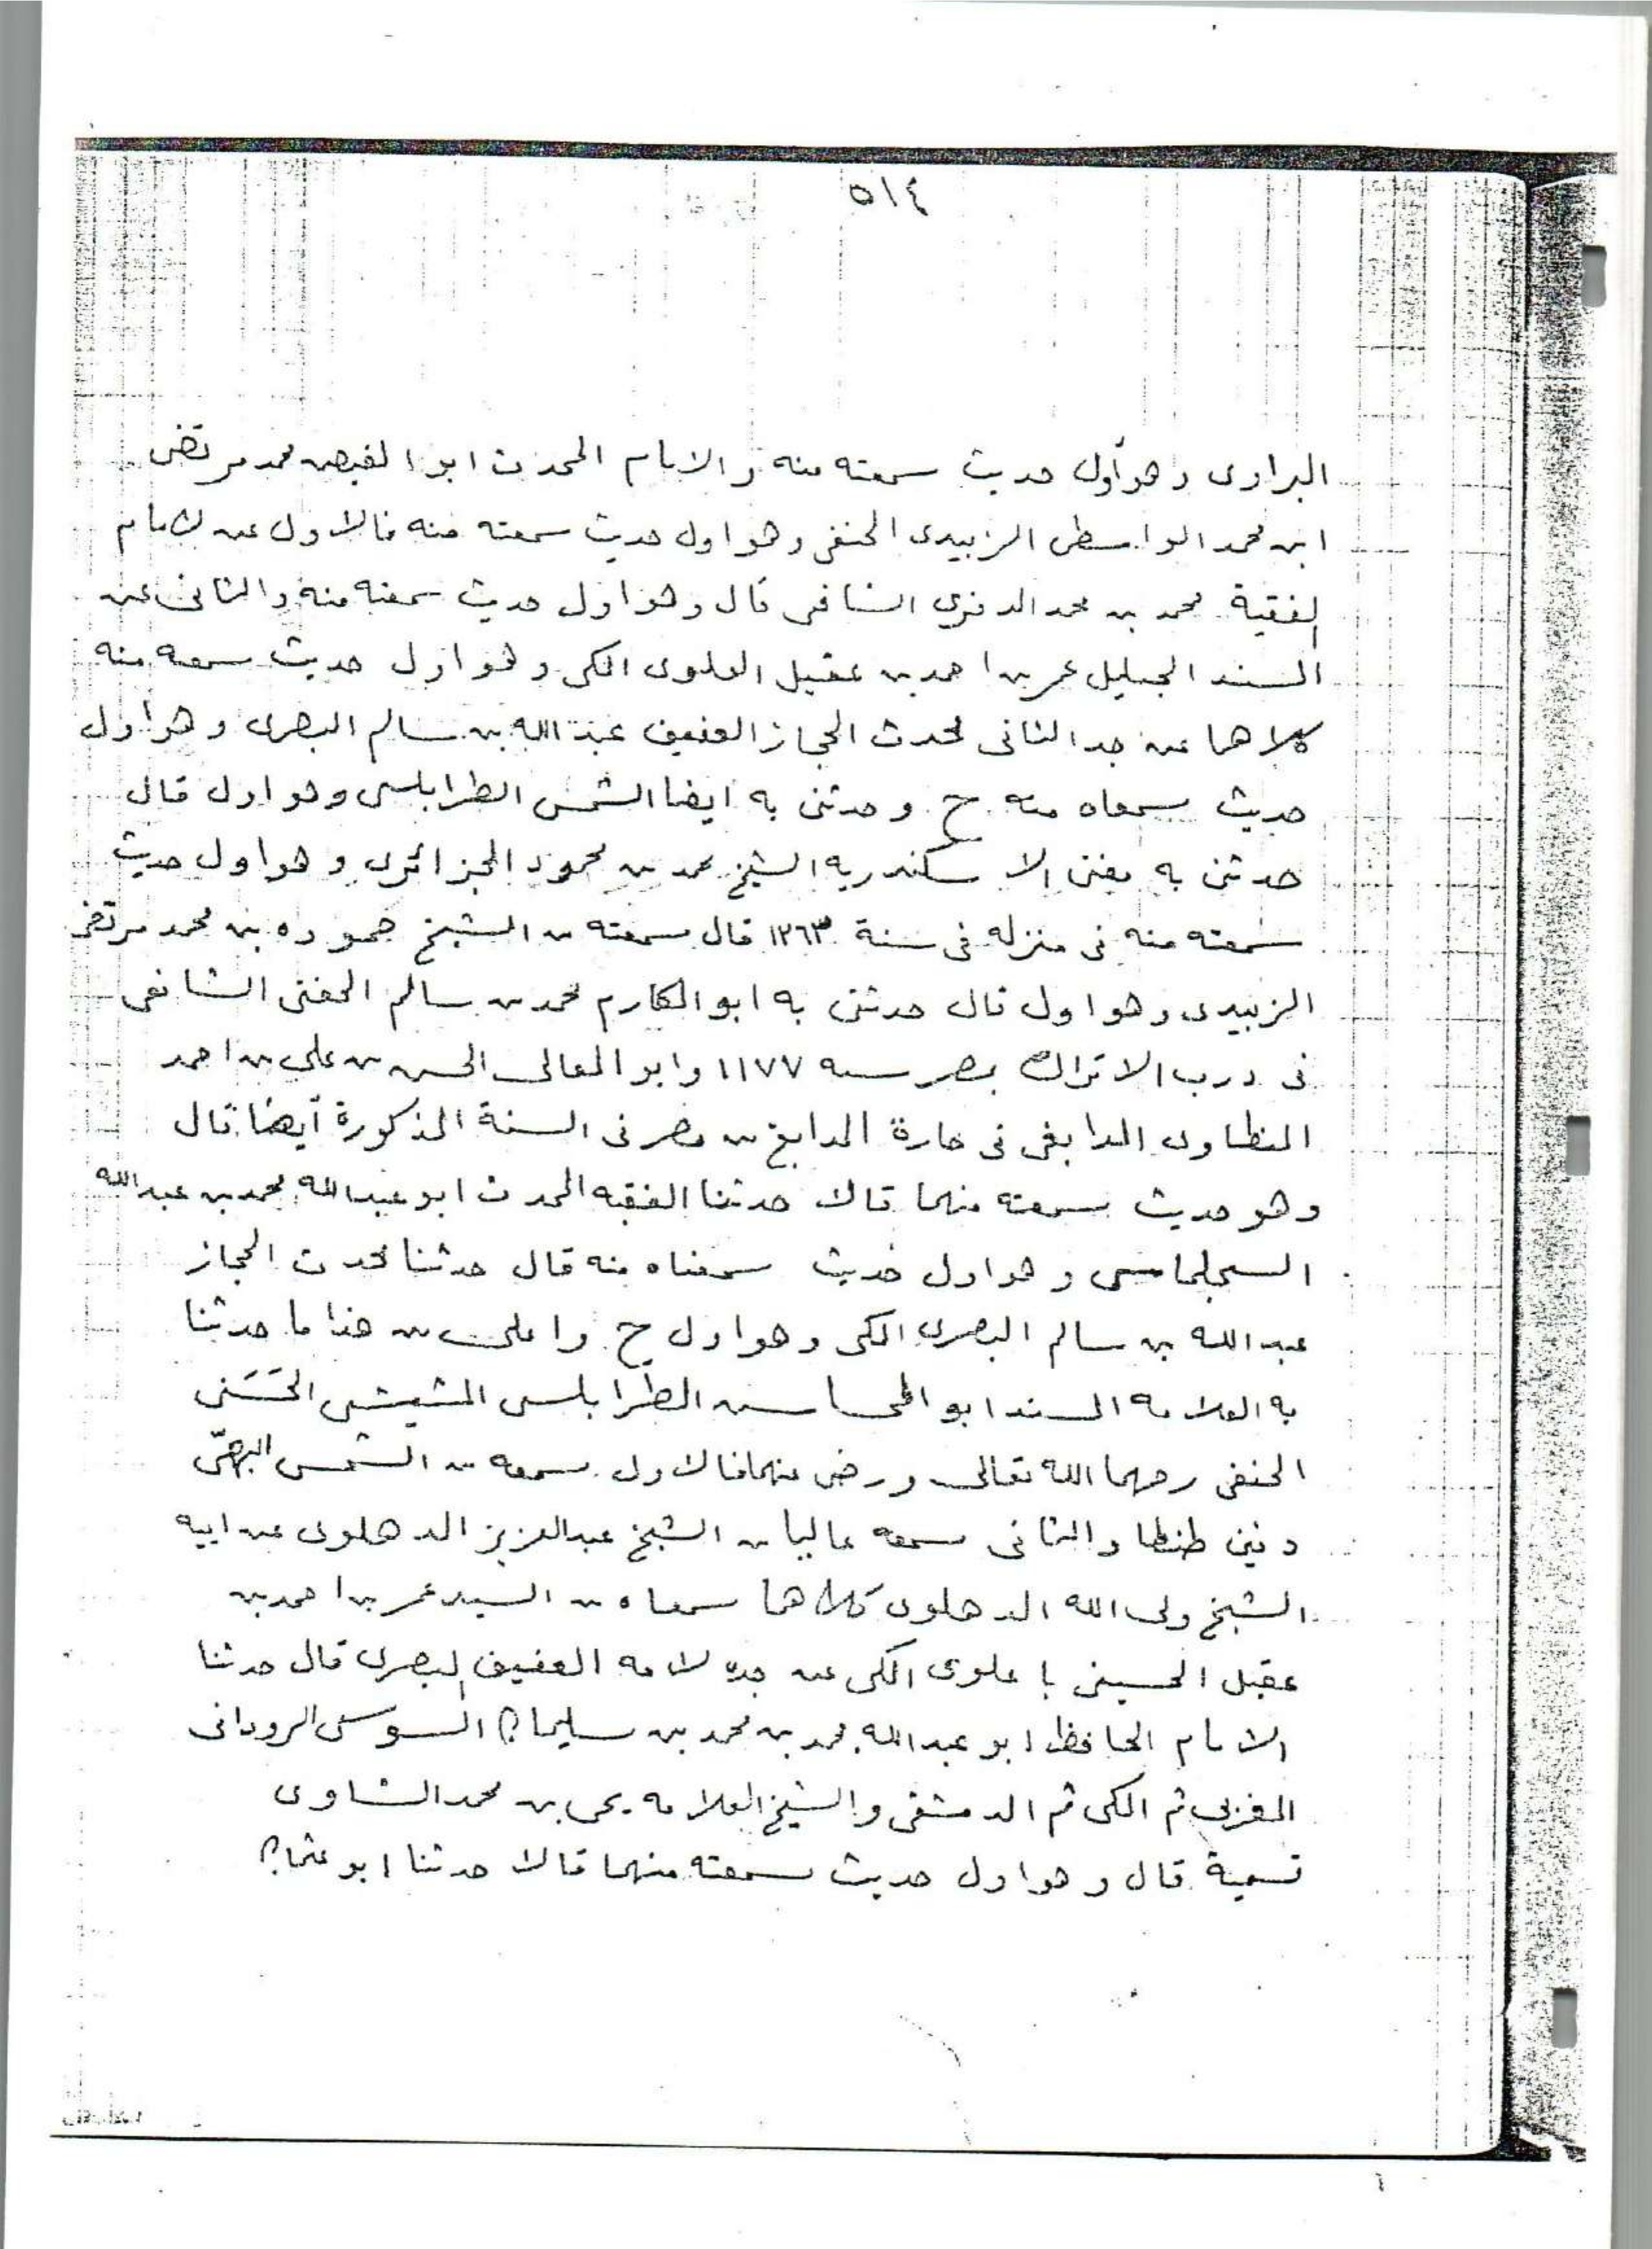 ٥١٤
البراوى وهو أول حديث سمعته منه والامام المحدث ابو الفيض محمد مرتضى
ابن محمد الواسطى الزبيدى الحنفى وهو اول حديث سمعته منه فالاول عن الامام
الفقية محمد بن محمد الدفري الشافعى قال وهو اول حديث سمعته منه والثانى عن
السند الجليل عمر بن احمد بن عقيل العلوى المكى وهو اول حديث سمعه منه
كلاهما عن جد الثانى محدث الحجاز العفيف عبد الله بن سالم البصرى وهو أول
حديث سمعاه منه ح وحدثنى به ايضا الشمس الطرابلسى وهو اول قال
حدثنى به مفتى الاسكندرية الشيخ محمد بن محمود الجزائرى وهو اول حديث
سمعته منه فى منزله فى سنة ١٢٦٣ قال سمعته من الشيخ حموده بن محمد مرتضى
الزبيدى وهو اول قال حدثنى به ابو المكارم محمد بن سالم الحفنى الشافعى
فى درب الاتراك بمصر سنه ١١٧٧ وابو المعالى الحسن بن على بن احمد
المنطاوى المدابغى فى حارة المدابغ من مصر فى السنة المذكورة أيضا قال
وهو حديث سمعته منهما قالا حدثنا الفقيه المحدث ابو عبد الله محمد بن عبد الله
السجلماسى وهو اول حديث سمعناه منه قال حدثنا محدث الحجاز
عبد الله بن سالم البصرى المكى وهو اول ح واعلى من هذا ما حدثنا
به العلامه المسند ابو المحاسن الطرابلسى المشيشى الحَسَنى
الحنفى رحمهما الله تعالى ورضى عنهما فالاول سمعه من الشمس البهىّ
دفين طنطا والثانى سمعه عاليا من الشيخ عبد العزيز الدهلوى عن ابيه
الشيخ ولى الله الدهلوى كلاهما سمعاه من السيد عمر بن احمد بن
عقيل الحسينى باعلوى المكى عن جده لامه العفيف البصرى قال حدثنا
الامام الحافظ ابو عبد الله محمد بن محمد بن سليمان السوسى الرودانى
المغربى ثم المكى ثم الدمشقى والشيخ العلامه يحى بن محمد الشاوى
تسمية قال وهو اول حديث سمعته منهما قالا حدثنا ابو عثمان